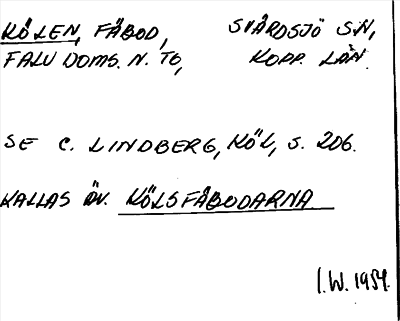 KÖLEN, FÄBOD, SVÄRDSJÖ SN,
FALU DOMS. N. TG, KOPP. LÄN.
SE C. LINDBERG, KÖL, S. 206.
KALLAS ÄV. KÖLSFÄBODARNA
I.W. 1954.